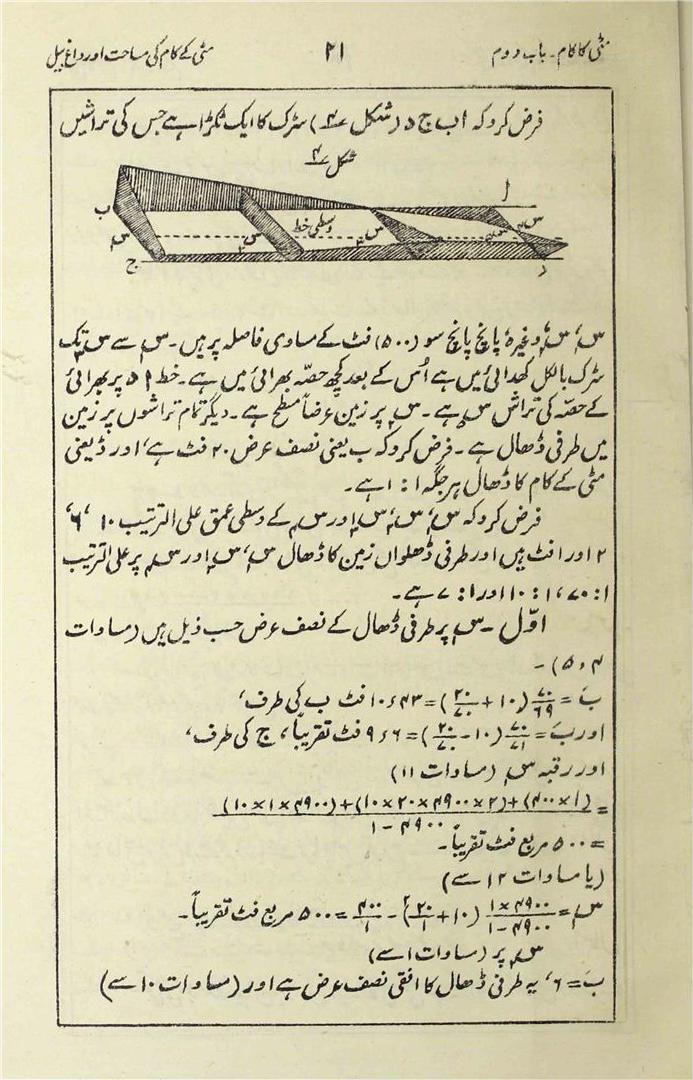 مٹی کا کام۔ باب دوم ۲۱ مٹی کے کام کی مساحت اور داغ بیل
فرض کرو کہ ا ب ج د (شکل ۴) سڑک کا ایک ٹکڑا ہے جس کی تراشیں
شکل ۴
ا
ب
وسطی خط
ج
د
س۱، س۲ وغیرہ پانچ پانچ سو (۵۰۰) فٹ کے مساوی فاصلہ پر ہیں۔ س۱ سے س۳ تک
سڑک بالکل کھدائی میں ہے اُس کے بعد کچھ حصّہ بھرائی میں ہے۔ خط ا د پر بھرائی
کے حصّہ کی تراش ہے۔ پر زمین عرضاً مسطح ہے۔ دیگر تمام تراشوں پر زمین
میں طرفی ڈھال ہے۔ فرض کرو کہ ب یعنی نصف عرض ۲۰ فٹ ہے، اور ڈ یعنی
مٹی کے کام کا ڈھال ہر جگہ ۱ : ۱ ہے۔
فرض کرو کہ س۱، س۲، س۳ اور س۴ کے وسطی عمق علی الترتیب ۱۰، ۶،
۲ اور ۱ فٹ ہیں اور طرفی ڈھلواں زمین کا ڈھال پر علی الترتیب
۱ : ۷۰، ۱ : ۱۰ اور ۱ : ۷ ہے۔
اوّل۔ س۱ پر طرفی ڈھال کے نصف عرض حسب ذیل ہیں (مساوات
۴، ۵)۔
بَ = ۷۰/۶۹ (۱۰ + ۲۰/۷۰) = ۱۰ء۴۳ فٹ ب کی طرف،
اور بَ = ۷۰/۷۱ (۱۰ − ۲۰/۷۰) = ۹ء۶ فٹ تقریباً، ج کی طرف،
اور رقبہ س۱ (مساوات ۱۱)
= (۱×۴۰۰)+(۲×۴۹۰۰×۲۰×۱۰)+(۴۹۰۰×۱×۱۰) / ۴۹۰۰ − ۱
= ۵۰۰ مربع فٹ تقریباً۔
(یا مساوات ۱۲ سے)
س۱ = ۴۹۰۰×۱ / ۴۹۰۰−۱ (۱۰ + ۲۰/۱)² − ۴۰۰/۱ = ۵۰۰ مربع فٹ تقریباً۔
س۲ پر (مساوات ۱ سے)
بَ = ۶، یہ طرفی ڈھال کا افقی نصف عرض ہے اور (مساوات ۱۰ سے)